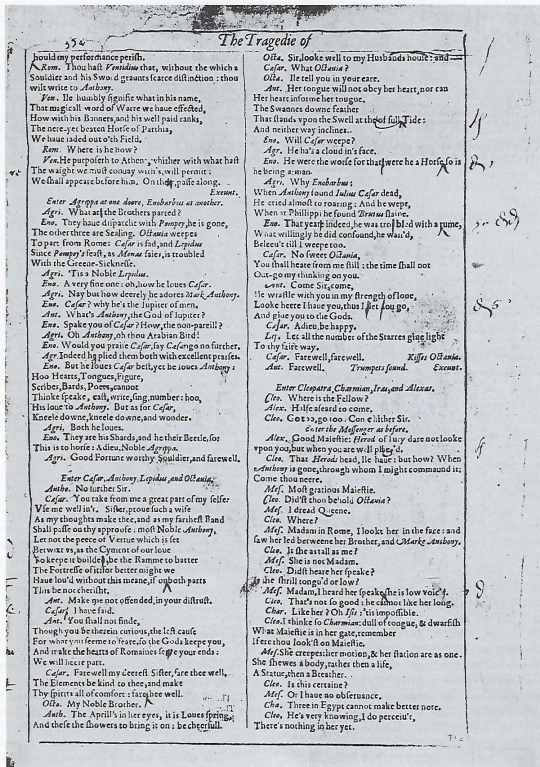 The Tragedie of
hould my performance perish.
Rom. Thou hast Ventidius that, without the which a
Souldier and his Sword graunts scarce distinction: thou
wilt write to Anthony.
Ven. Ile humbly signifie what in his name,
That magicall word of Warre we haue effected,
How with his Banners, and his well paid ranks,
The nere-yet beaten Horse of Parthia,
We haue iaded out o'th Field.
Rom. Where is he now?
Ven. He purposeth to Athens, whither with what hast
The waight we must conuay with's, will permit:
We shall appeare before him. On there, passe along.
Exeunt.
Enter Agrippa at one doore, Enobarbus at another.
Agri. What are the Brothers parted?
Eno. They haue dispatcht with Pompey, he is gone,
The other three are Sealing. Octauia weepes
To part from Rome: Cæsar is sad, and Lepidus
Since Pompey's feast, as Menas saies, is troubled
With the Greene-Sicknesse.
Agri. 'Tis a Noble Lepidus.
Eno. A very fine one: oh, how he loues Cæsar.
Agri. Nay but how deerely he adores Mark Anthony.
Eno. Cæsar? why he's the Iupiter of men.
Ant. What's Anthony, the God of Iupiter?
Eno. Spake you of Cæsar? How, the non-pareill?
Agri. Oh Anthony, oh thou Arabian Bird!
Eno. Would you praise Cæsar, say Cæsar go no further.
Agr. Indeed he plied them both with excellent praises.
Eno. But he loues Cæsar best, yet he loues Anthony:
Hoo Hearts, Tongues, Figure,
Scribes, Bards, Poets, cannot
Thinke speake, cast, write, sing, number: hoo,
His loue to Anthony. But as for Cæsar,
Kneele downe, kneele downe, and wonder.
Agri. Both he loues.
Eno. They are his Shards, and he their Beetle, so:
This is to horse: Adieu, Noble Agrippa.
Agri. Good Fortune worthy Souldier, and farewell.
Enter Cæsar, Anthony, Lepidus, and Octauia.
Antho. No further Sir.
Cæsar. You take from me a great part of my selfe:
Vse me well in't. Sister, proue such a wife
As my thoughts make thee, and as my farthest Band
Shall passe on thy approofe: most Noble Anthony,
Let not the peece of Vertue which is set
Betwixt vs, as the Cyment of our loue
To keepe it builded, be the Ramme to batter
The Fortresse of it: for better might we
Haue lou'd without this meane, if on both parts
This be not cherisht.
Ant. Make me not offended, in your distrust.
Cæsar. I haue said.
Ant. You shall not finde,
Though you be therein curious, the lest cause
For what you seeme to feare, so the Gods keepe you,
And make the hearts of Romaines serue your ends:
We will heere part.
Cæsar. Farewell my deerest Sister, fare thee well,
The Elements be kind to thee, and make
Thy spirits all of comfort: fare thee well.
Octa. My Noble Brother.
Anth. The Aprill's in her eyes, it is Loues spring,
And these the showers to bring it on: be cheerfull.
Octa. Sir, looke well to my Husbands house: and
Cæsar. What Octauia?
Octa. Ile tell you in your eare.
Ant. Her tongue will not obey her heart, nor can
Her heart informe her tougue.
The Swannes downe feather
That stands vpon the Swell at the of full Tide:
And neither way inclines.
Eno. Will Cæsar weepe?
Agr. He ha's a cloud in's face.
Eno. He were the worse for that were he a Horse, so is
he being a man.
Agri. Why Enobarbus:
When Anthony found Iulius Cæsar dead,
He cried almost to roaring: And he wept,
When at Phillippi he found Brutus slaine.
Eno. That year indeed, he was trobled with a rume,
What willingly he did confound, he wail'd,
Beleeu't till I weepe too.
Cæsar. No sweet Octauia,
You shall heare from me still: the time shall not
Out-go my thinking on you.
Ant. Come Sir, come,
Ile wrastle with you in my strength of loue,
Looke heere I haue you, thus I let you go,
And giue you to the Gods.
Cæsar. Adieu, be happy.
Lep. Let all the number of the Starres giue light
To thy faire way.
Cæsar. Farewell, farewell. Kisses Octauia.
Ant. Farewell. Trumpets sound. Exeunt.
Enter Cleopatra, Charmian, Iras, and Alexas.
Cleo. Where is the Fellow?
Alex. Halfe afeard to come.
Cleo. Go too, go too: Come hither Sir.
Enter the Messenger as before.
Alex. Good Maiestie: Herod of Iury dare not looke
vpon you, but when you are well pleas'd.
Cleo. That Herods head, Ile haue: but how? When
Anthony is gone, through whom I might commaund it:
Come thou neere.
Mes. Most gratious Maiestie.
Cleo. Did'st thou behold Octauia?
Mes. I dread Queene.
Cleo. Where?
Mes. Madam in Rome, I lookt her in the face: and
saw her led betweene her Brother, and Marke Anthony.
Cleo. Is she as tall as me?
Mes. She is not Madam.
Cleo. Didst heare her speake?
Is she shrill tongu'd or low?
Mes. Madam, I heard her speake, she is low voic'd.
Cleo. That's not so good: he cannot like her long.
Char. Like her? Oh Isis: 'tis impossible.
Cleo. I thinke so Charmian: dull of tongue, & dwarfish
What Maiestie is in her gate, remember
If ere thou look'st on Maiestie.
Mes. She creepes: her motion, & her station are as one.
She shewes a body, rather then a life,
A Statue, then a Breather.
Cleo. Is this certaine?
Mes. Or I haue no obseruance.
Cha. Three in Egypt cannot make better note.
Cleo. He's very knowing, I do perceiu't,
There's nothing in her yet.